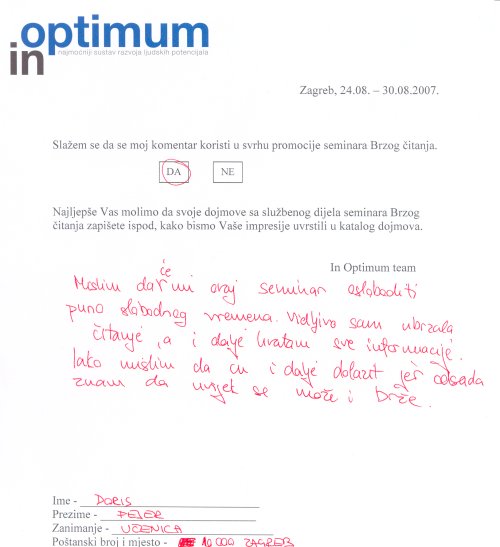 in optimum
najmoćniji sustav razvoja ljudskih potencijala
Zagreb, 24.08. – 30.08.2007.
Slažem se da se moj komentar koristi u svrhu promocije seminara Brzog čitanja.
DA NE
Najljepše Vas molimo da svoje dojmove sa službenog dijela seminara Brzog
čitanja zapišete ispod, kako bismo Vaše impresije uvrstili u katalog dojmova.
In Optimum team
Mislim da će mi ovaj seminar osloboditi
puno slobodnog vremena. Vidljivo sam ubrzala
čitanje, a i dalje hvatam sve informacije.
Iako mislim da ću i dalje dolazit jer odsada
znam da uvijek se može i brže.
Ime - DORIS
Prezime - PEJER
Zanimanje - UČENICA
Poštanski broj i mjesto - 10 000 ZAGREB